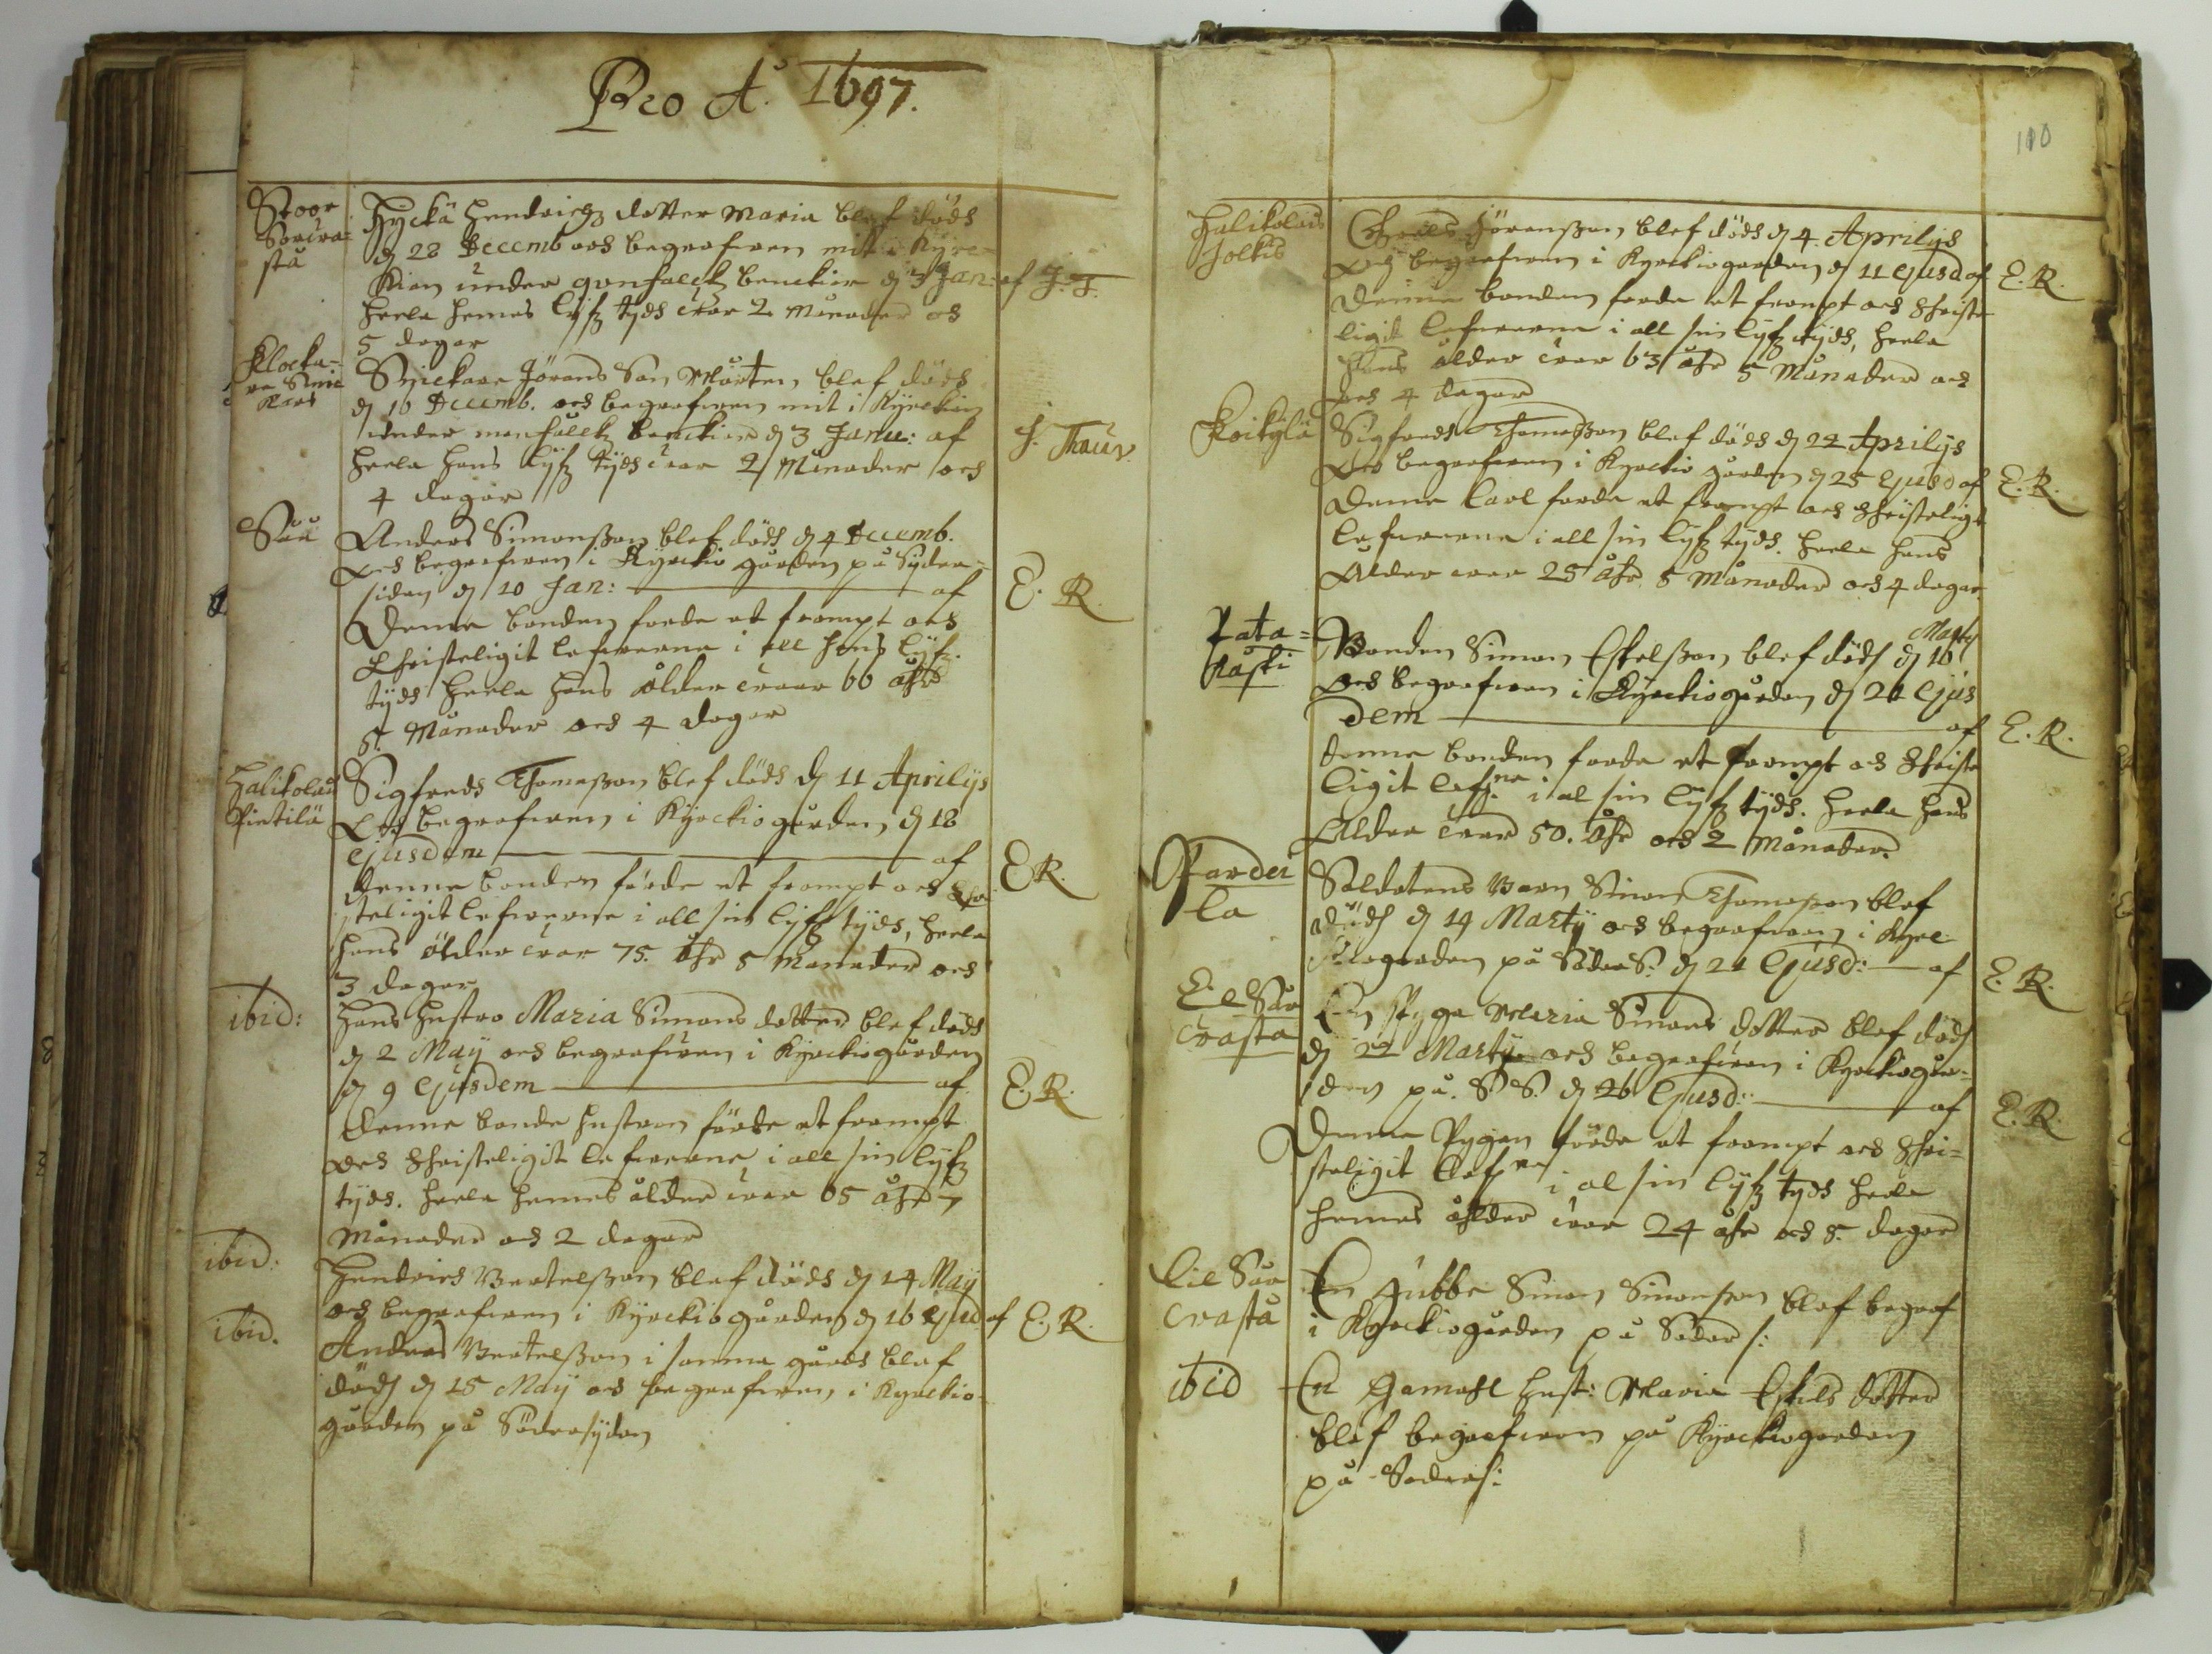 Pro Aº 1697.
Stoor
Sarwa=
sta
Hendrichz dotter Maria blef dödh
d 28 Decemb och begrafwen mit i Kyrc=
kian under qvnfolckz benckiar d 3 Jan: af J. T.
heela hennes lyfz tydh war 2 Månader och
5 dagar
Klocka=
Snickare Jörans Son Mårten blef dödh
d 16 Decemb. och begrafwen mit i Kyrckian
under manfolckz benckiar d 3 Janu: af
J. Thaur.
heela hans lyfz tydh war 2 Månader och
4 dagar
Sau
Anders Simonsson blef dödh d 4 Decemb.
och begrafwen i Kyrckio gården på Syder=
siden d 10 Jan: af
E. R.
Denne bonden förde et frompt och
Christeligit lefwerne i all hans lyfz
tydh heela hans ålder waar 66 åhr
5 Månader och 4 dagar
Halikolas
Pietilä
Sigfredh Thomasson blef dödh d 11 Aprilijs
och begrafwen i Kyrckiogården d 18
ejusdem af
E R.
denne bonden förde et frompt och Chri
steligit lefwerne i all sin lyfz tydh, heela
hans ålder war 75. åhr 5 Månader och
3 dagar
ibid:
Hans hustro Maria Simons dotter blef dödh
d 2 Maij och begrafwen i Kyrckiogården
d 9 ejusdem af
E. R.
Denne bonde hustron förde et frompt
och Christeligit lefwerne i all sin lyfz
tydh. heela hennes ålder war 65 åhr 7
Månader och 2 dagar
ibid:
Hendrich Bertelsson blef dödh d 14 Maij
och begrafwen i Kyrckiogården d 16 ejusd af E. R.
ibid.
Anders Bertelsson i samma gårdh blef
dödh d 15 Maij och begrafwen i Kyrckio=
gården på Södersyden
110
Halikolas
Jolkis
Jöransson blef dödh d 4. Aprilijs
och begrafwen i Kyrckiogården d 11 ejusd af
E. R.
Denne bonden förde et frompt och Christe
ligit lefwerne i all sin lyfz tydh, heela
hans ålder war 63 åhr 5 Månader och
och 4 dagar
Koikylä
Sigfredh Thomasson blef dödh d 22 Aprilijs
och begrafwen i Kyrckio gården d 25 ejusd af
E. R.
Denne Carl förde et frompt och Christeligit
lefwerne i all sin lyfz tydh. heela hans
Ålder war 25 åhr 5 Månader och 4 dagar
Pata=
kåski
Bonden Simon Eskelsson blef dödh d 16 Martij
och begrafwen i Kyrckiogården d 20 ejus
dem af
E. R.
denne bonden förde et frompt och Christe
ligit lefne i al sin lyfz tydh. heela hans
Ålder war 50. åhr och 2 Månader.
Pardei
la
Soldatens Barn Simon Thomasson blef
dödh d 14 Martij och begrafwen i Kyrc
kiogården på SöderS: d 21 Ejusd: af
E. R.
wasta
En Pyga Maria Simons dotter blef dödh
d 22 Martij och begrafwen i Kyrckiogår=
den på. S. S. d 26 Ejusd: af
E. R.
Denne Pygan förde et frompt och Chri=
steligit lefne i al sin lyfz tydh heela
hennes ålder war 24 åhr och 5. dagar
Lil Sar
wasta
En Gubbe Simon Simonsson blef begraf
i Kyrckiogården på Söder s:
ibid
En Gamahl hust: Maria Eskels dotter
blef begrafwen på Kyrckiogården
på Söders: